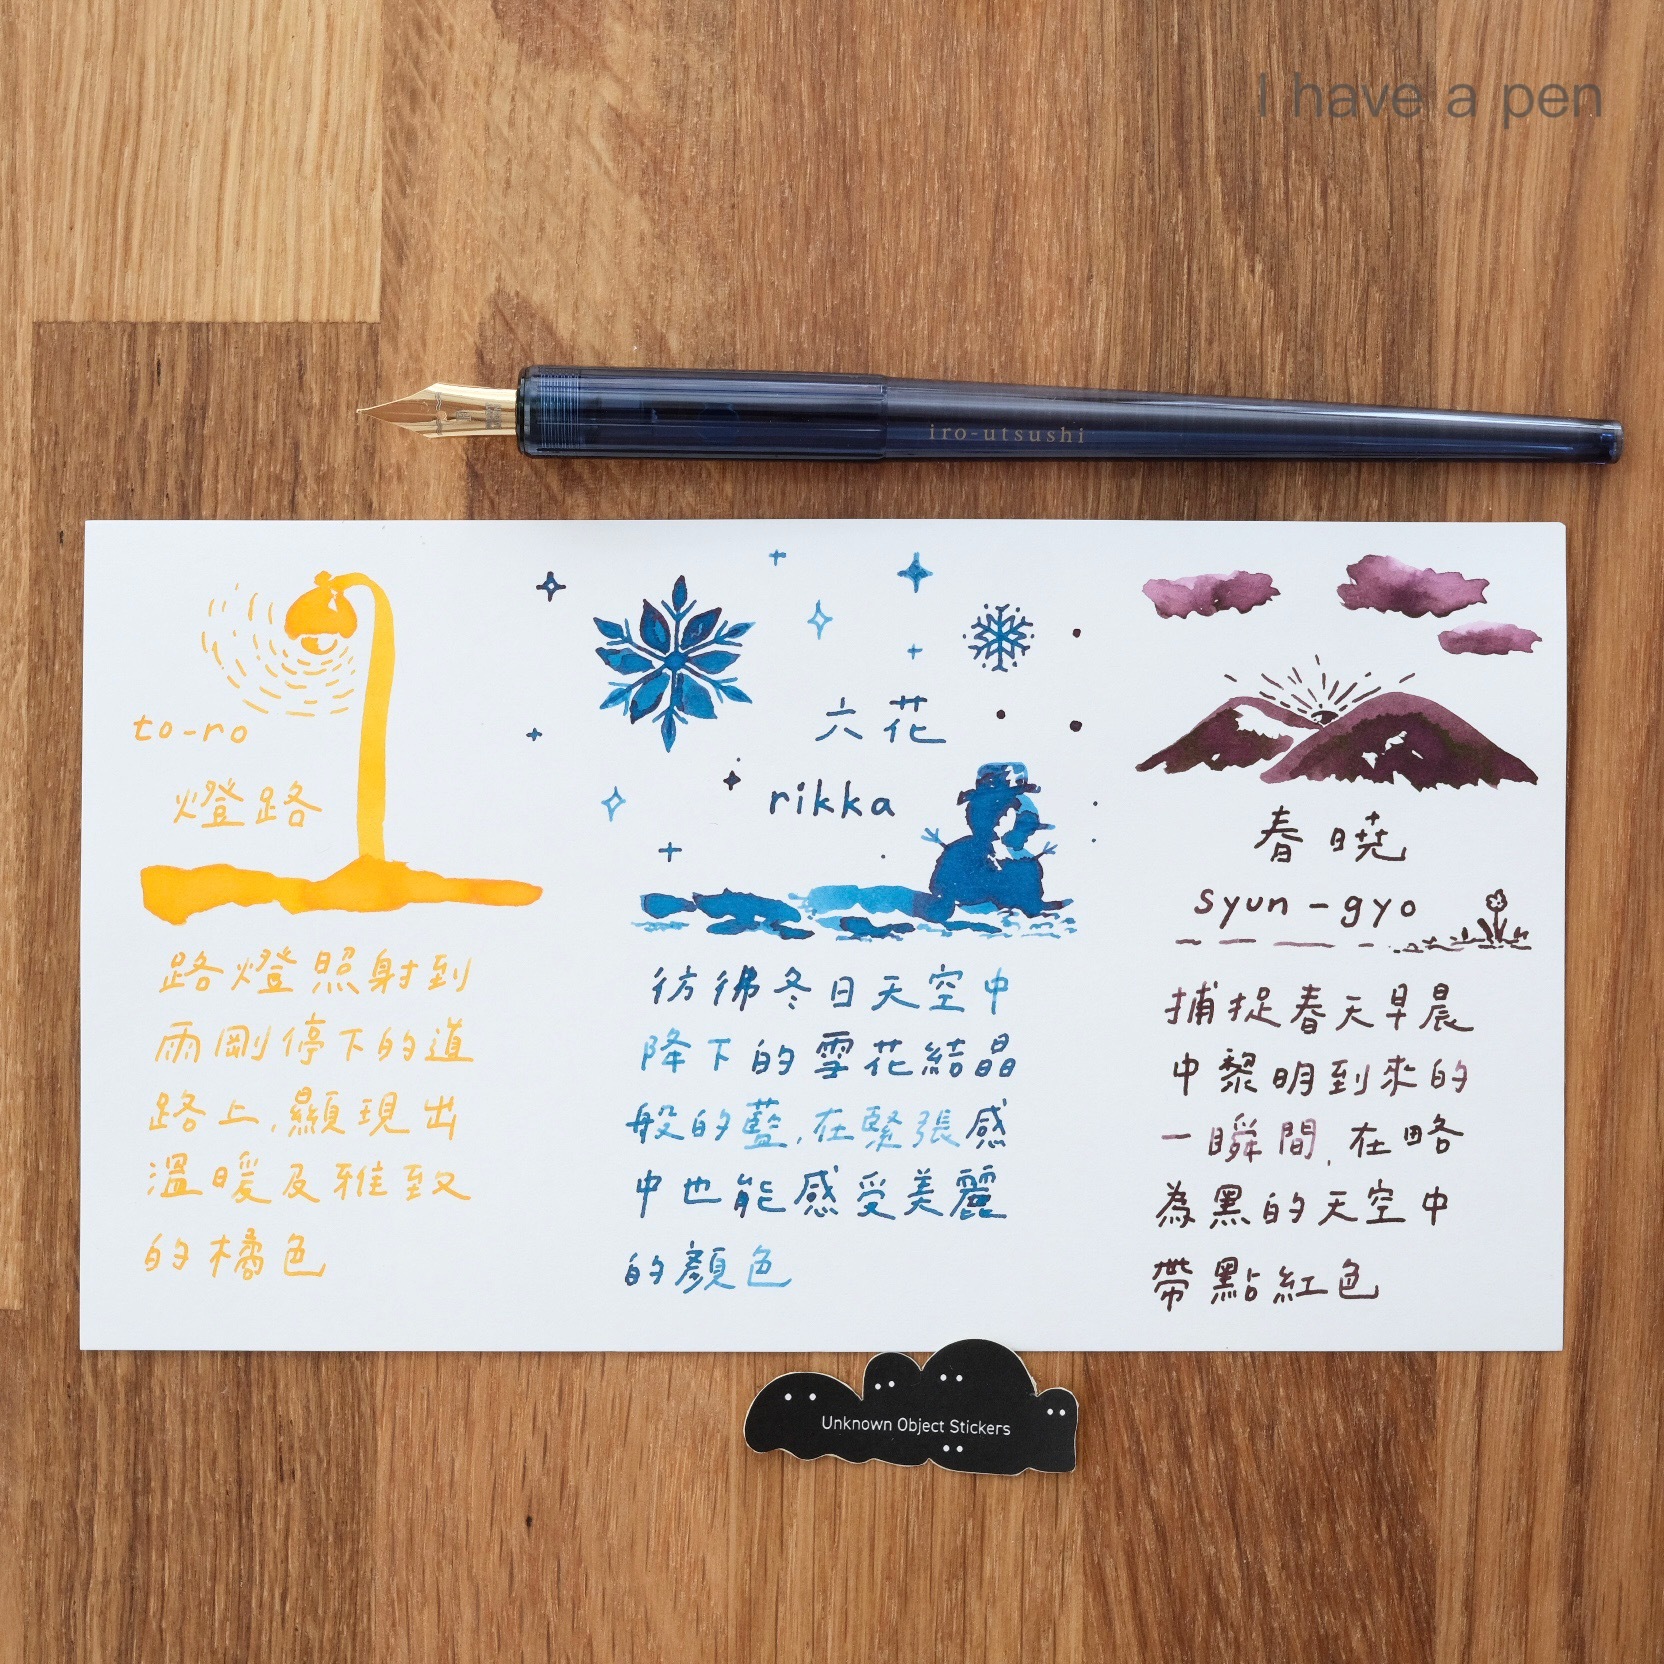 I have a pen
iro-utsushi
to-ro
燈路
路燈照射到
雨剛停下的道
路上,顯現出
溫暖及雅致
的橘色
六花
rikka
彷彿冬日天空中
降下的雪花結晶
般的藍,在緊張感
中也能感受美麗
的顏色
春曉
syun-gyo
捕捉春天早晨
中黎明到來的
一瞬間,在略
為黑的天空中
帶點紅色
Unknown Object Stickers